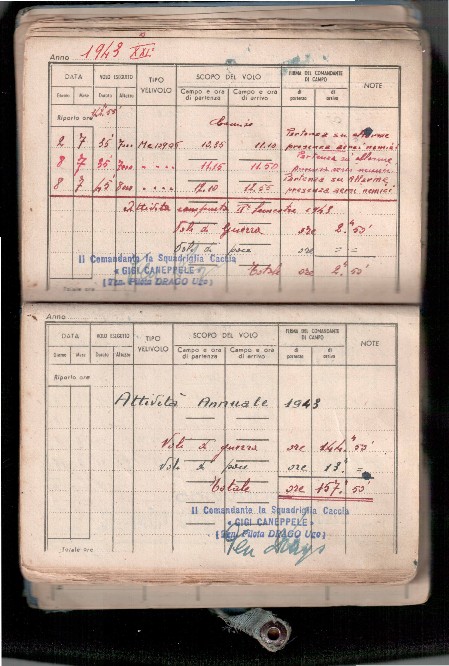 Anno 1943 XXI°
DATA VOLO ESEGUITO TIPO VELIVOLO SCOPO DEL VOLO FIRMA DEL COMANDANTE DI CAMPO NOTE
Giorno Mese Durata Altezza Campo e ora di partenza Campo e ora di arrivo di partenza di arrivo
Riporto ore
2 7 35' Me 109 G5 10.35 11.10 Partenza su allarme
presenza aerei nemici
8 7 35' 7000 " " " " 11.15 11.50 Partenza su allarme
presenza aerei nemici
8 7 45' 8000 " " " " 12.10 12.55 Partenza su allarme
presenza aerei nemici
Attività 1943
Voli di guerra ore 2.h 50'
Voli di pace ore = =
Il Comandante la Squadriglia Caccia
« GIGI CANEPPELE »
(Ten. Pilota DRAGO Ugo)
Totale ore 2.h 50'
Totale ore
Anno
DATA VOLO ESEGUITO TIPO VELIVOLO SCOPO DEL VOLO FIRMA DEL COMANDANTE DI CAMPO NOTE
Giorno Mese Durata Altezza Campo e ora di partenza Campo e ora di arrivo di partenza di arrivo
Riporto ore
Attività Annuale 1943
Voli di guerra ore 144.h 50'
Voli di pace ore 13.h =
Totale ore 157.h 50'
Il Comandante la Squadriglia Caccia
« GIGI CANEPPELE »
(Ten. Pilota DRAGO Ugo)
Ten Drago
Totale ore